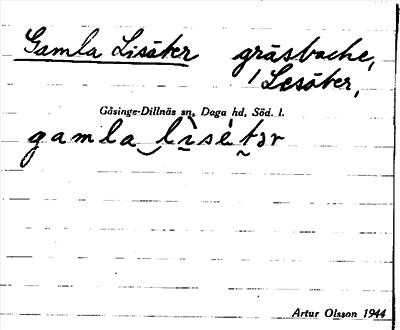 Gamla Lisäker gräsbacke,
Lesäker,
Gåsinge-Dillnäs sn, Daga hd, Söd. l.
gamla lìsétər
Artur Olsson 1944